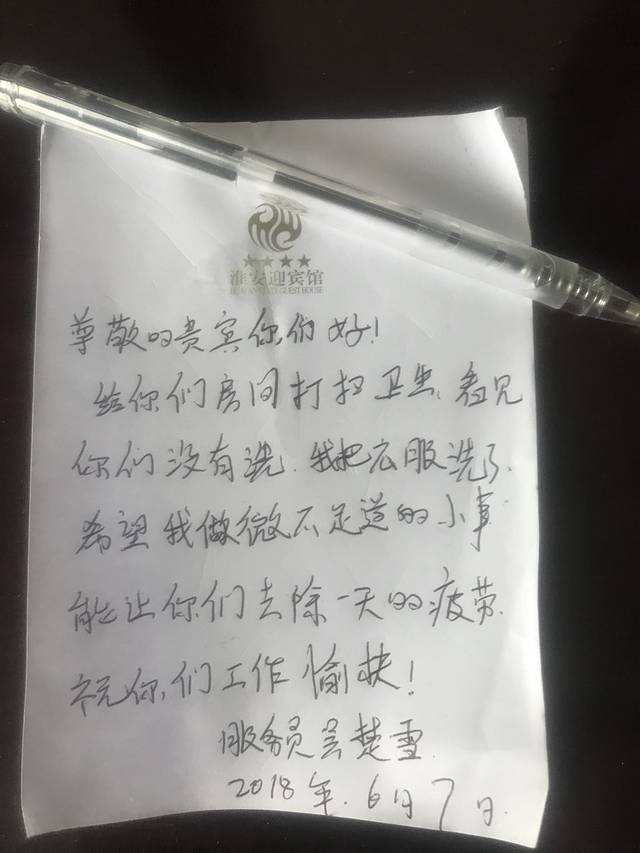 ★★★★
淮安迎宾馆
GUEST HOUSE
尊敬的贵宾你们好!
给你们房间打扫卫生、看见
你们没有洗.我把衣服洗了.
希望我做微不足道的小事
能让你们去除一天的疲劳.
祝你们工作愉快!
服务员 楚雪
2018年.6月7日.